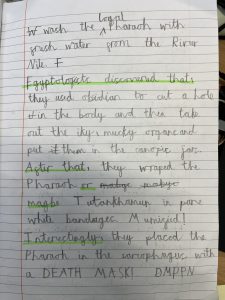 loyal
w wach the ^ Pharaoh with
fresh water from the River
Nile. F
Egyptologists discovered that,
they used obsidian to cut a hole
in the body and then take
out the icky, mucky organs and
put it them in the canopic jars.
After that, they wraped the
Pharaoh or
maybe Tutankhamun in pure
white bandages. Mumified!
Interectingly they placed the
Pharaoh in the sarcophagus with
a DEATH MASK! DMPPN